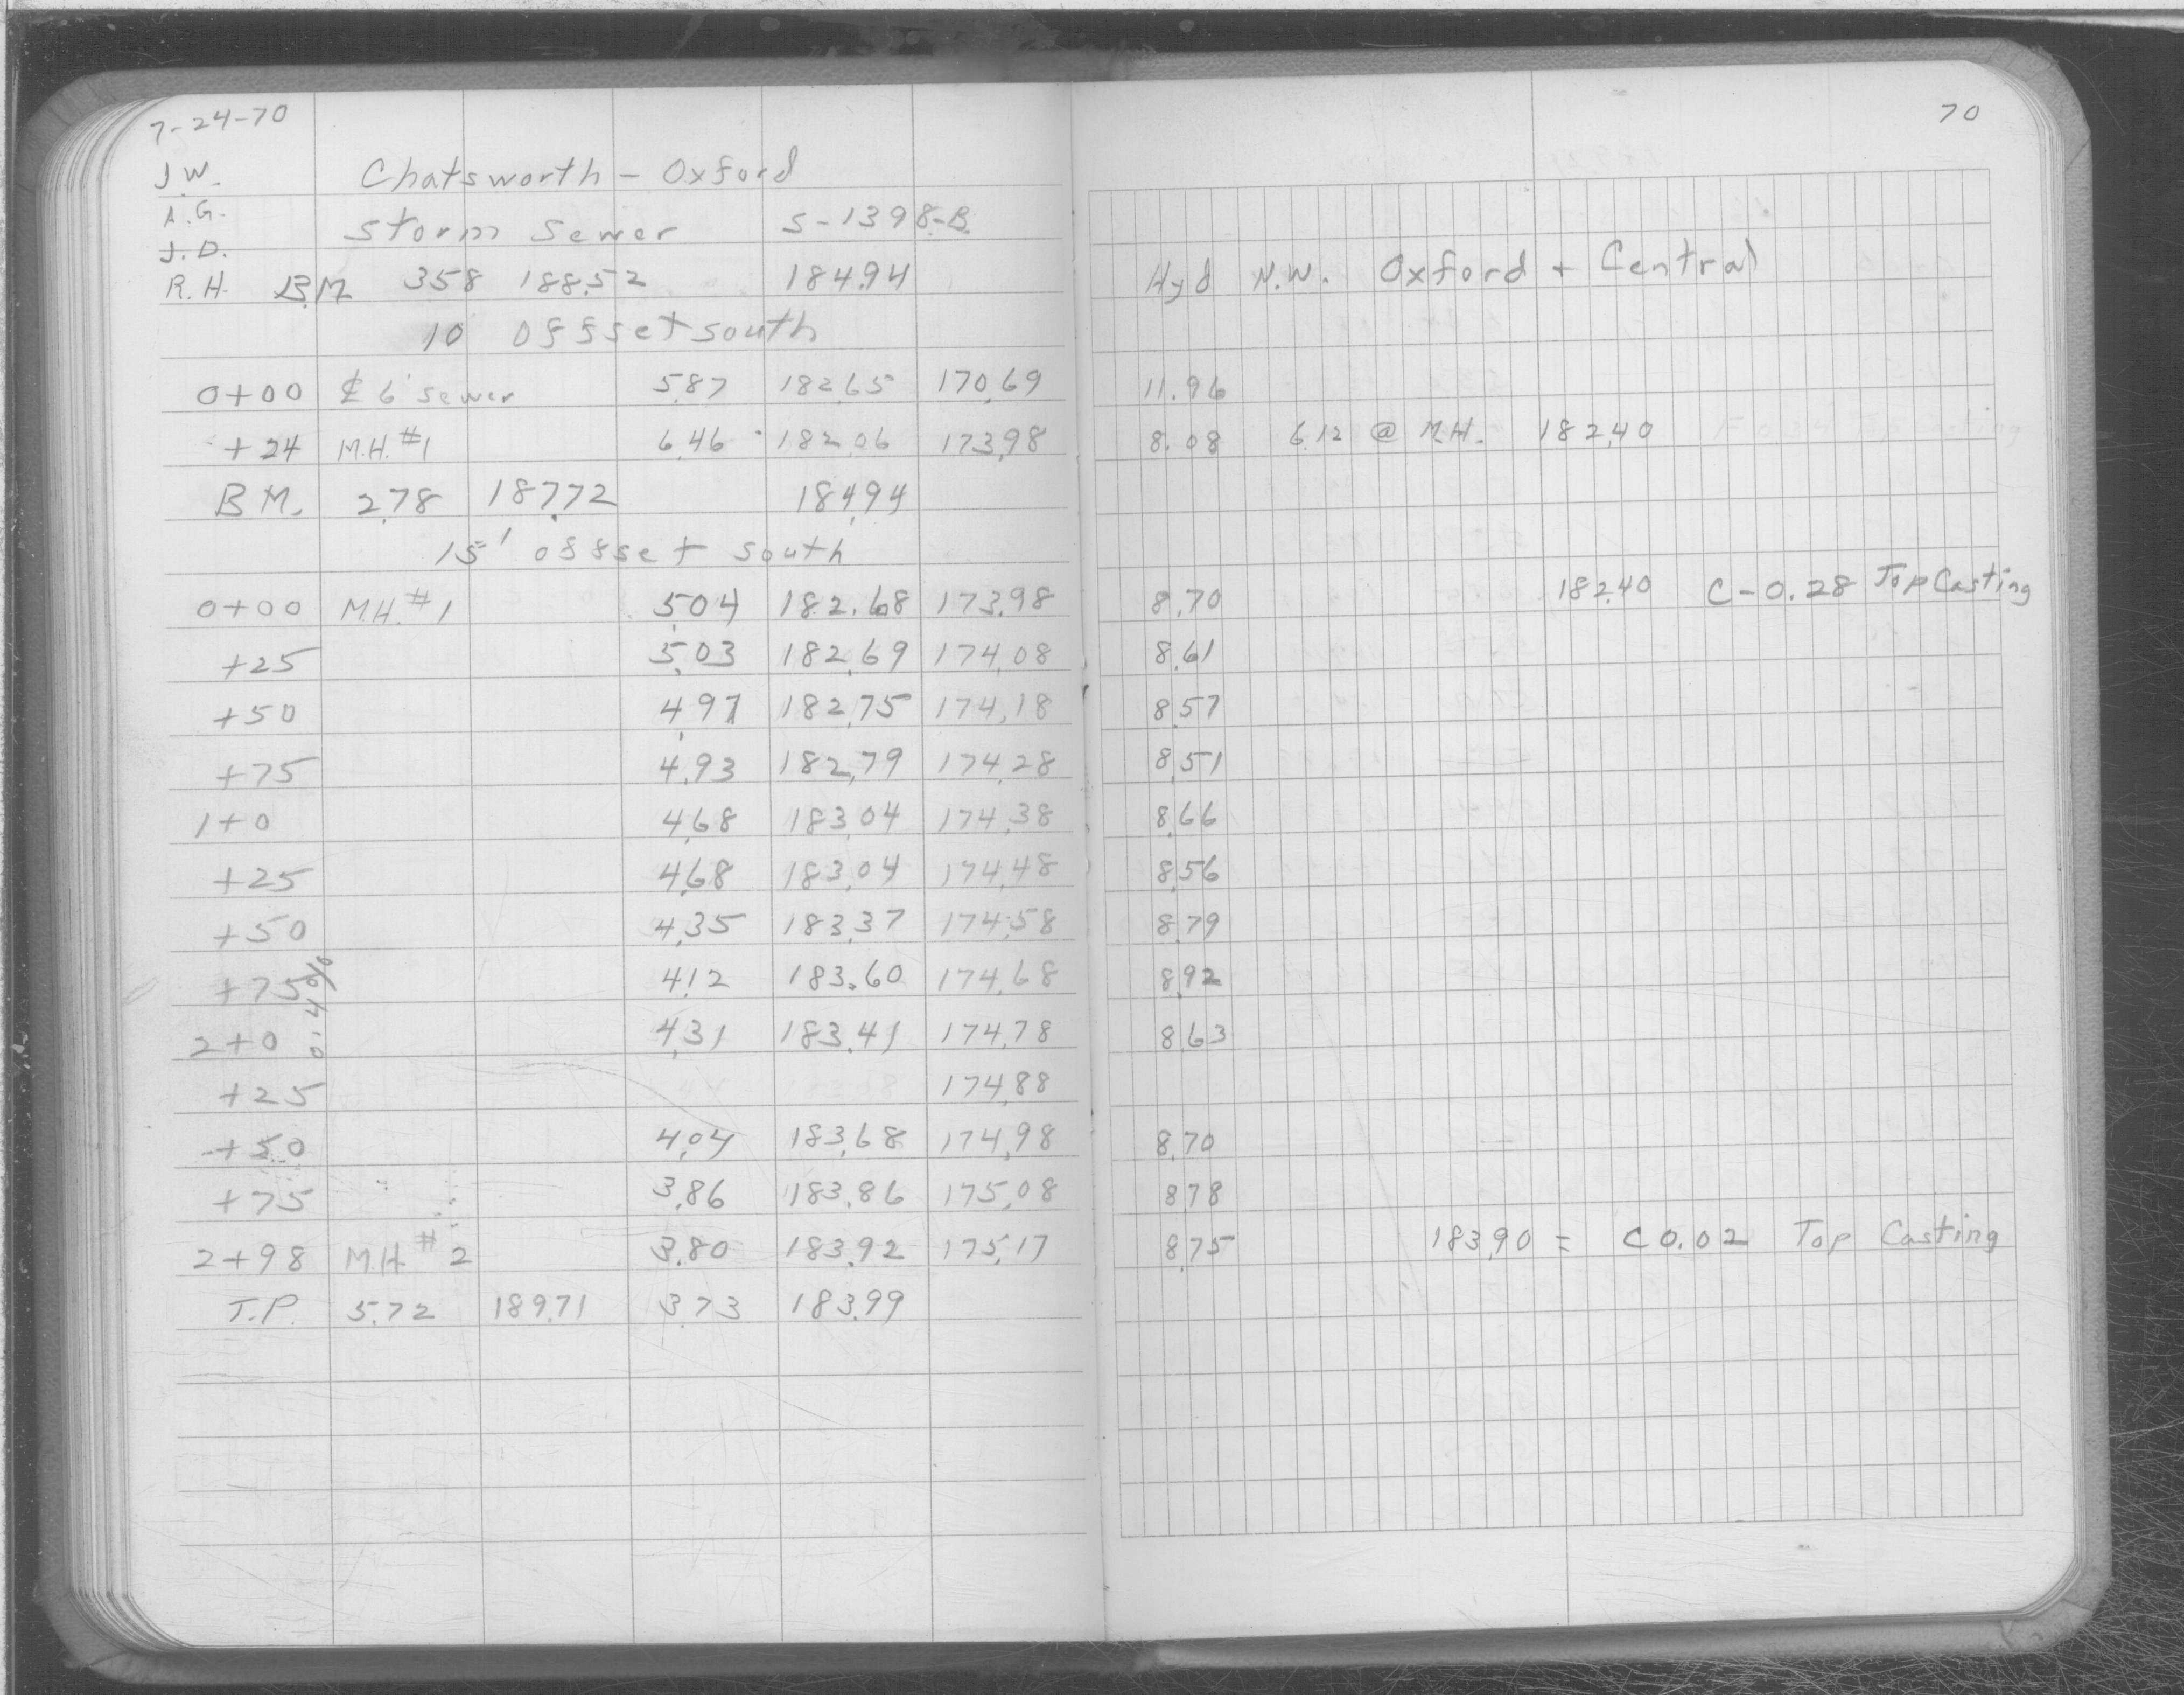 7-24-70
70
J.W. Chatsworth - Oxford
A.G. Storm Sewer S-1398-B
J.D.
R.H. B.M. 3.58 188.52 184.94 Hyd N.W. Oxford + Central
10 offset south
0+00 ℄ 6' sewer 5.87 182.65 170.69 11.96
+24 M.H. #1 6.46 182.06 173.98 8.08 6.12 @ M.H. 182.40
B.M. 2.78 187.72 184.94
15' offset south
0+00 M.H. #1 5.04 182.68 173.98 8.70 182.40 C-0.28 Top Casting
+25 5.03 182.69 174.08 8.61
+50 4.97 182.75 174.18 8.57
+75 4.93 182.79 174.28 8.51
1+0 4.68 183.04 174.38 8.66
+25 4.68 183.04 174.48 8.56
+50 4.35 183.37 174.58 8.79
+75 4.12 183.60 174.68 8.92
0.4%
2+0 4.31 183.41 174.78 8.63
+25 174.88
+50 4.04 183.68 174.98 8.70
+75 3.86 183.86 175.08 8.78
2+98 M.H. #2 3.80 183.92 175.17 8.75 183.90 = C 0.02 Top Casting
T.P. 5.72 189.71 3.73 183.99